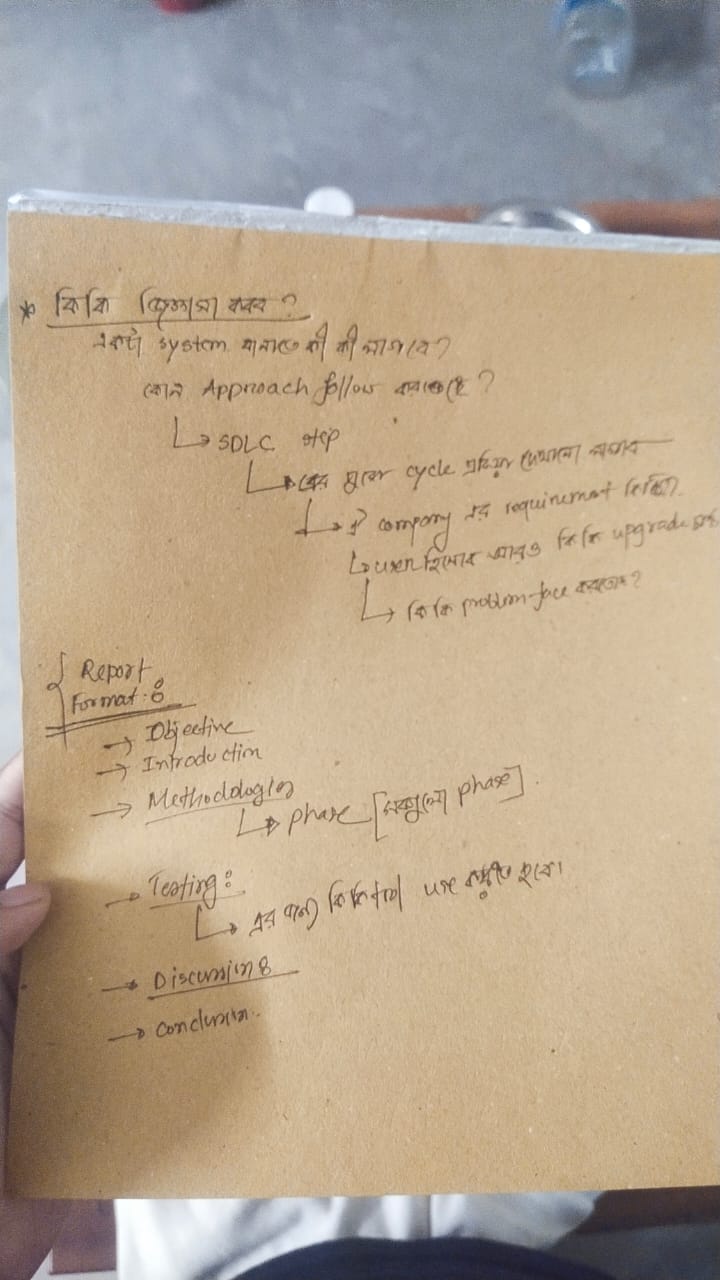 * কি কি জিজ্ঞাসা করব ?
একটা system বানাতে কী কী লাগবে ?
কোন Approach follow করতেছে ?
↳ SDLC step
↳ এর পুরো cycle প্রক্রিয়া দেখানো লাগবে
↳ ঐ company এর requirement কি কি?
↳ user হিসেবে আরও কি কি upgrade
↳ কি কি problem face করতেছে ?
Report
Format :
→ Objective
→ Introduction
→ Methodologies
↳ phase [সবগুলো phase].
→ Testing :
↳ এর জন্য কি কি tool use করতে হবে।
→ Discussion :
→ Conclusion.